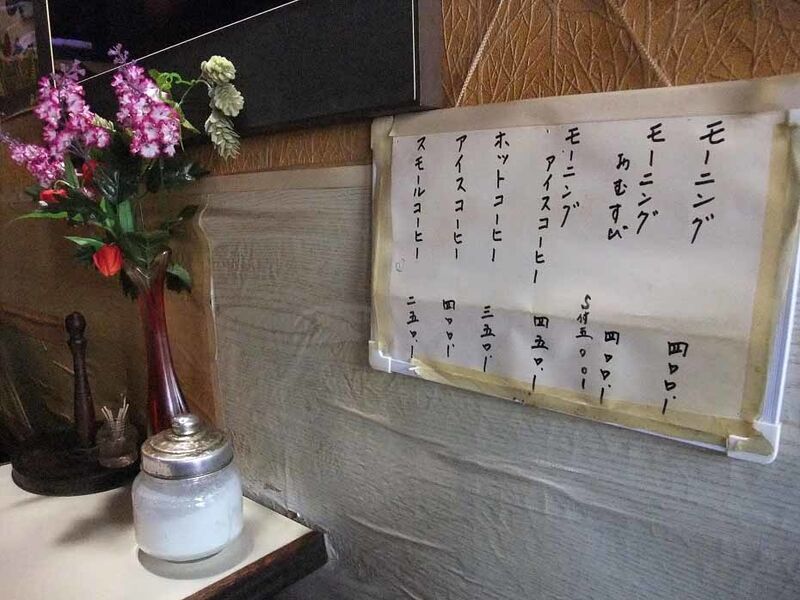 モーニング 四〇〇.ー
モーニング
おむすび 四〇〇.ー
S付五〇〇ー
モーニング
アイスコーヒー 四五〇.ー
ホットコーヒー 三五〇.ー
アイスコーヒー 四〇〇.ー
スモールコーヒー 二五〇.ー